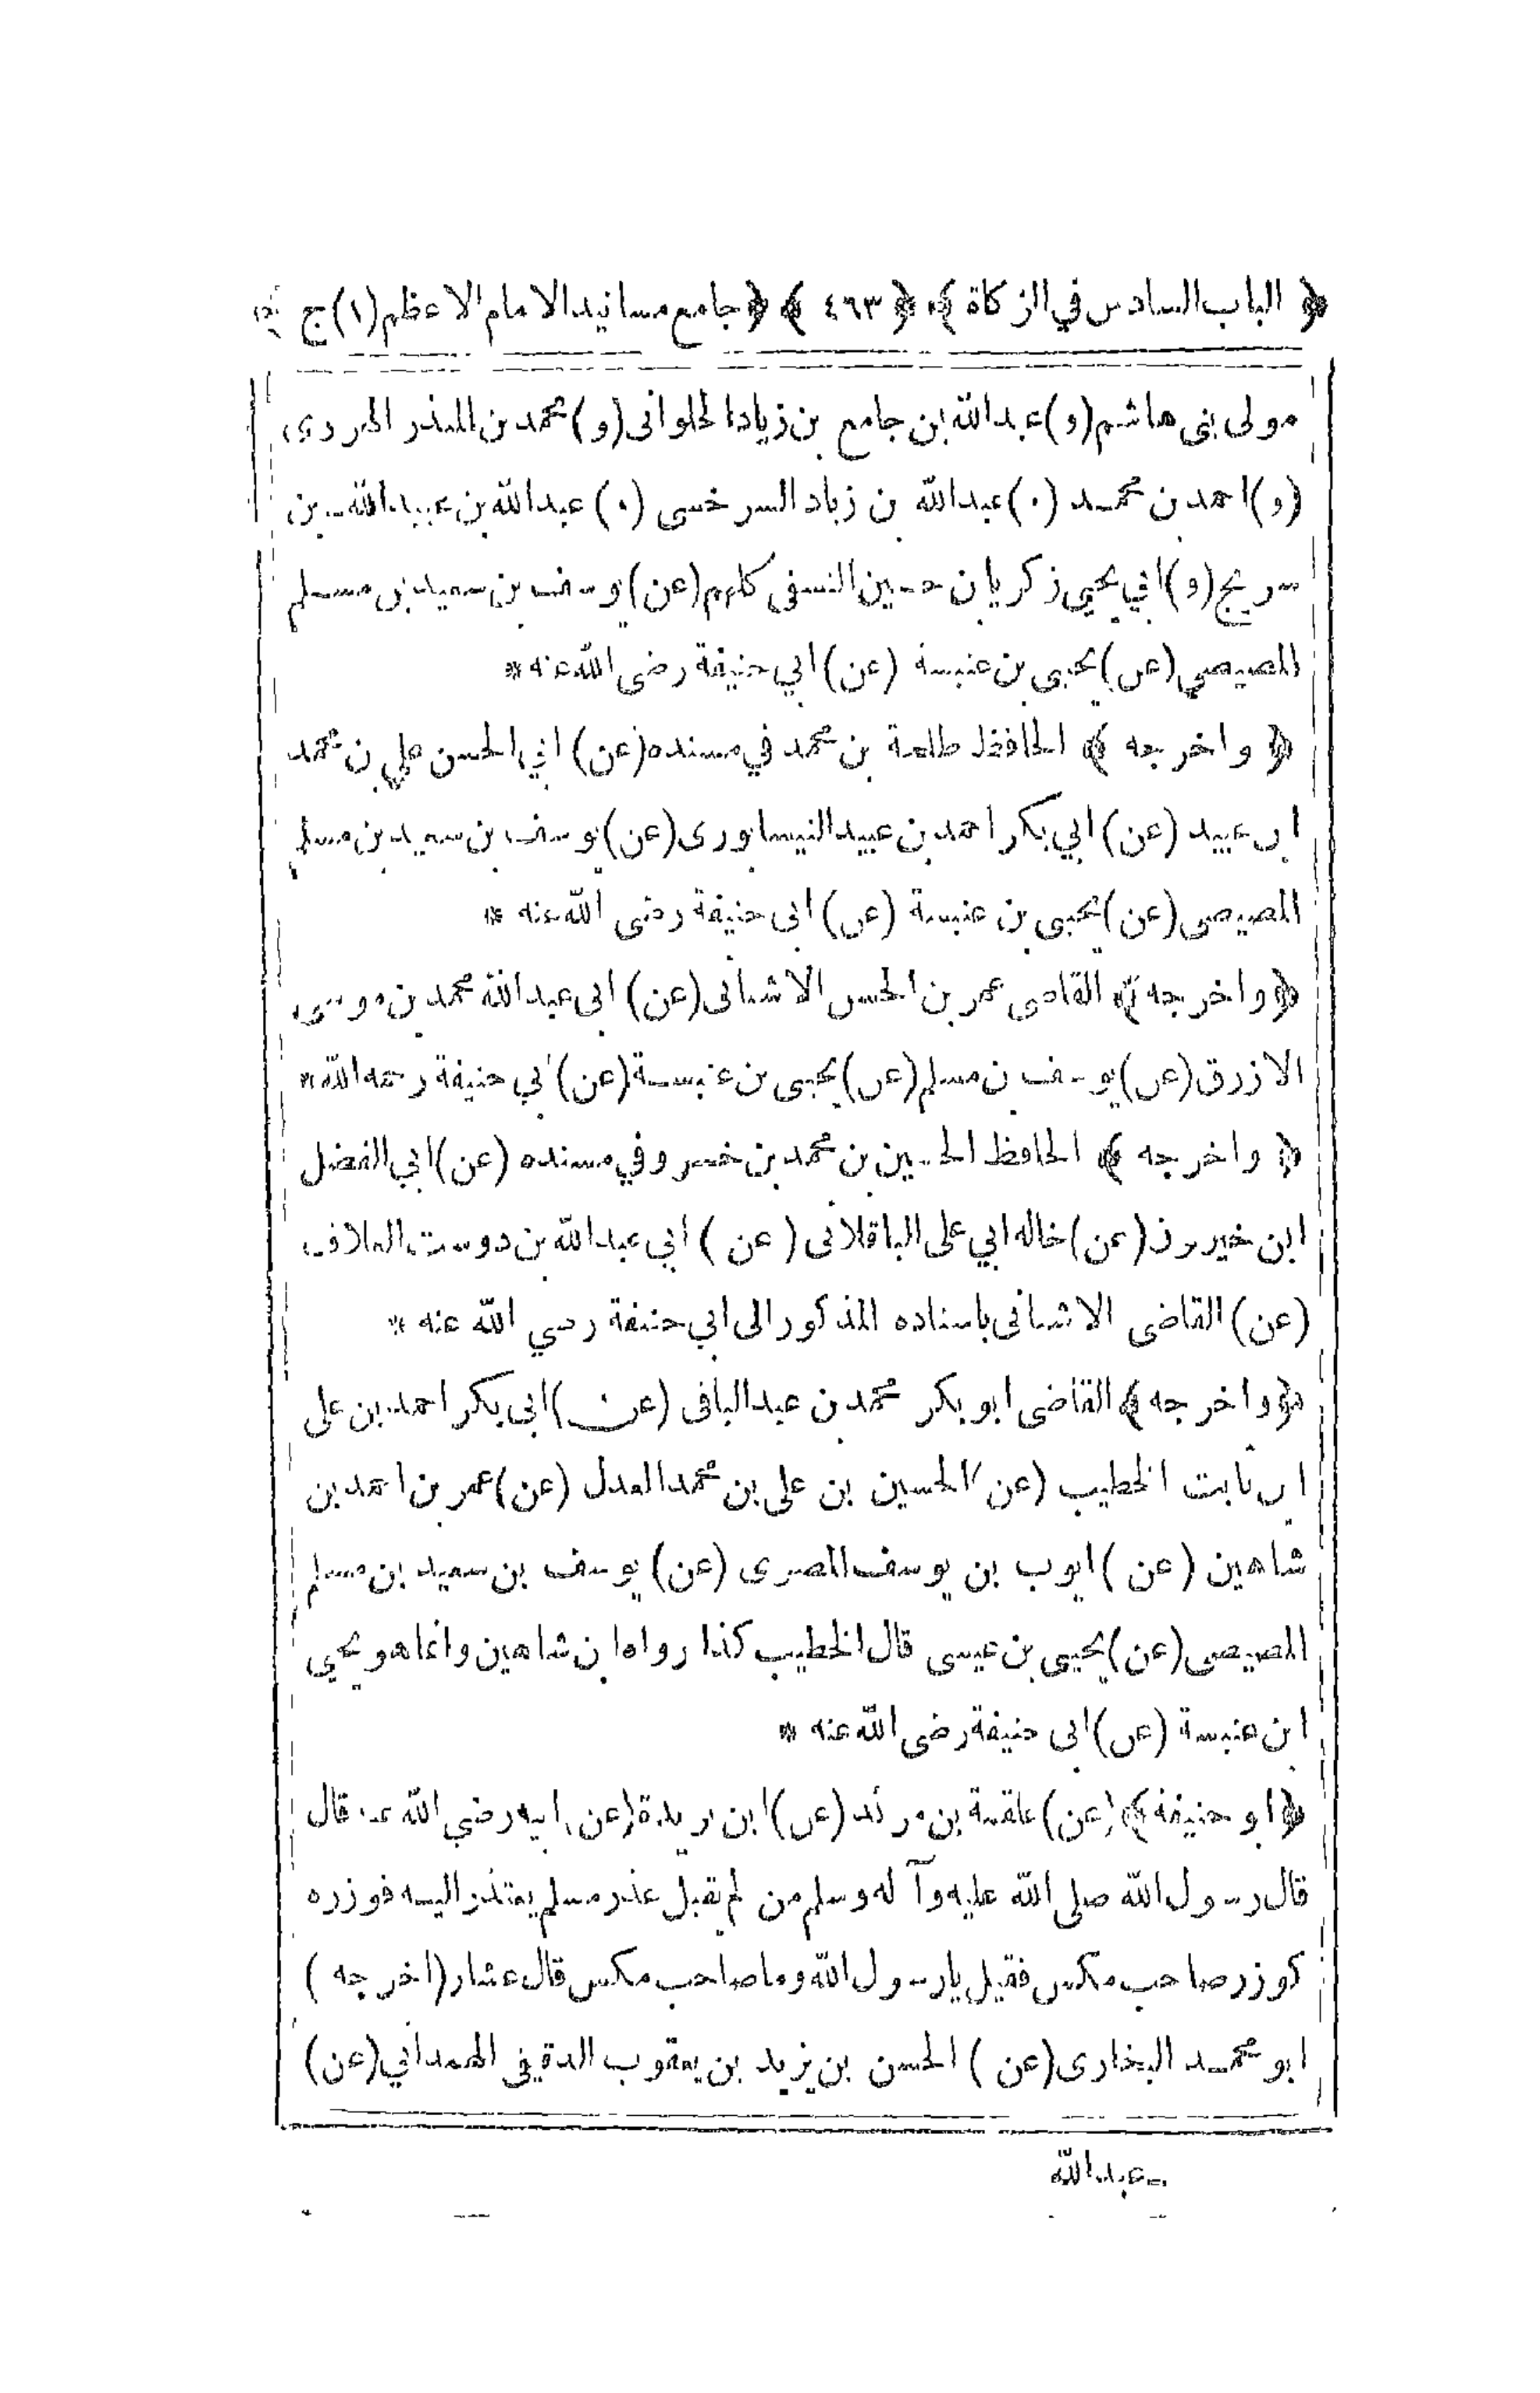 ﴿ الباب السادس في الزكاة ﴾ ﴿ ٤٦٣ ﴾ ﴿ جامع مسانيد الامام الاعظم (١) ج
مولى بنى هاشم (و) عبدالله بن جامع بن زياد الحلوانى (و) محمد بن المنذر الهروى
(و) احمد بن محمد (و) عبدالله بن زياد السرخسى (و) عبدالله بن عبيدالله بن
سريج (و) ابي يحيى زكريا بن حسين النسفى كلهم (عن) يوسف بن سعيد بن مسلم
المصيصي (عن) يحيى بن عنبسة (عن) ابي حنيفة رضى الله عنه *
﴿ واخرجه ﴾ الحافظ طلحة بن محمد في مسنده (عن) ابي الحسن علي بن محمد
ابن عبيد (عن) ابي بكر احمد بن عبيد النيسابورى (عن) يوسف بن سعيد بن مسلم
المصيصى (عن) يحيى بن عنبسة (عن) ابى حنيفة رضى الله عنه *
﴿ واخرجه ﴾ القاضى عمر بن الحسن الاشنانى (عن) ابى عبدالله محمد بن موسى
الازرق (عن) يوسف بن مسلم (عن) يحيى بن عنبسة (عن) ابي حنيفة رحمه الله *
﴿ واخرجه ﴾ الحافظ الحسين بن محمد بن خسرو في مسنده (عن) ابي الفضل
ابن خيرون (عن) خاله ابي على الباقلانى (عن) ابي عبدالله بن دوست العلاف
(عن) القاضى الاشنانى باسناده المذكور الى ابي حنيفة رضي الله عنه *
﴿ واخرجه ﴾ القاضى ابو بكر محمد بن عبدالباقى (عن) ابى بكر احمد بن على
ابن ثابت الخطيب (عن) الحسين بن على بن محمد المعدل (عن) عمر بن احمد بن
شاهين (عن) ايوب بن يوسف المصرى (عن) يوسف بن سعيد بن مسلم
المصيصى (عن) يحيى بن عيسى قال الخطيب كذا رواه ابن شاهين وانما هو يحيى
ابن عنبسة (عن) ابى حنيفة رضى الله عنه *
﴿ ابو حنيفة ﴾ (عن) علقمة بن مرثد (عن) ابن بريدة (عن) ابيه رضي الله عنه قال
قال رسول الله صلى الله عليه وآله وسلم من لم يقبل عذر مسلم يعتذر اليه فوزره
كوزر صاحب مكس فقيل يارسول الله وما صاحب مكس قال عشار (اخرجه)
ابو محمد البخارى (عن) الحسن بن يزيد بن يعقوب الدقيقى الهمداني (عن)
عبدالله